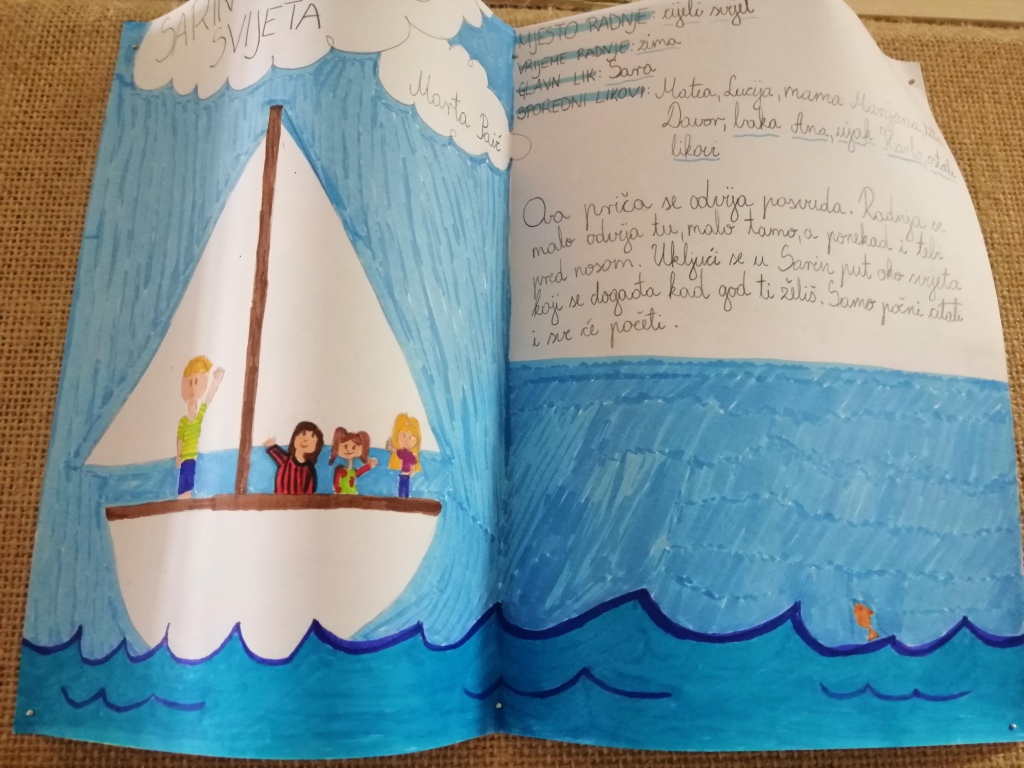 SARIN
SVIJETA
Marta Paić
MJESTO RADNJE: cijeli svijet
VRIJEME RADNJE: zima
GLAVN LIK: Šara
SPOREDNI LIKOVI: Matea, Lucija, mama Marijana,
Davor, baka Ana, ujak ostali
likovi
Ova priča se odvija posvuda. Radnja se
malo odvija tu, malo tamo, a ponekad i tebi
pred nosom. Uključi se u Sarin put oko svijeta
koji se događa kad god ti želiš. Samo počni čitati
i sve će početi.